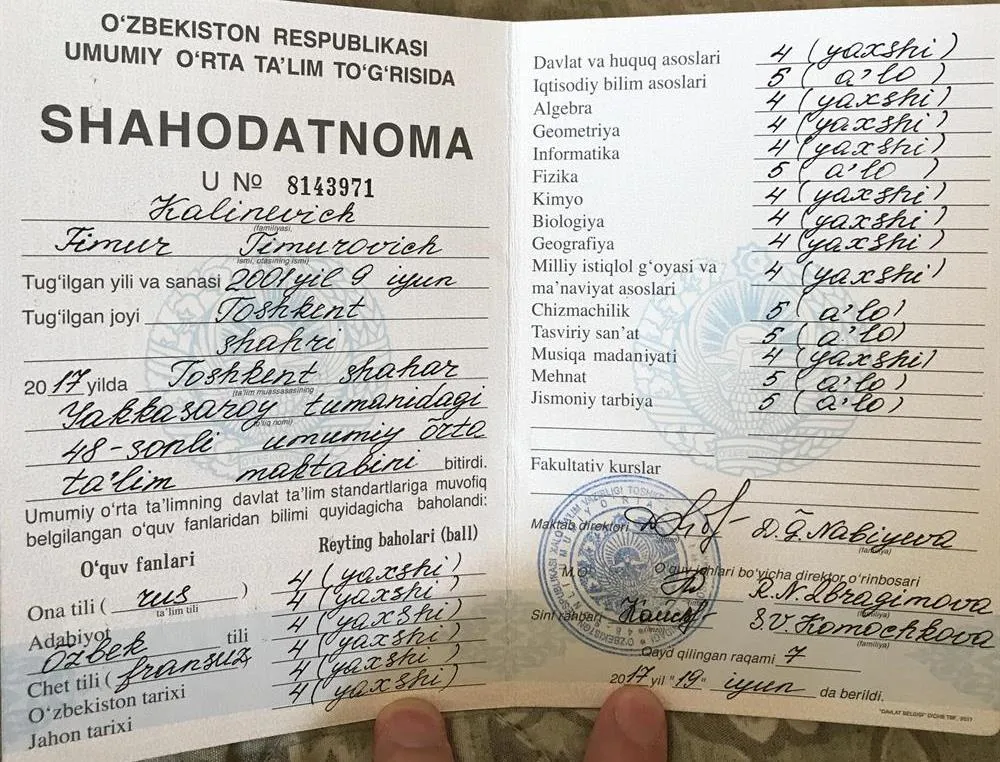 O‘ZBEKISTON RESPUBLIKASI
UMUMIY O‘RTA TA’LIM TO‘G‘RISIDA
SHAHODATNOMA
U № 8143971
Kalinevich
(familiyasi,
Timur Timurovich
ismi, otasining ismi)
Tug‘ilgan yili va sanasi 2001 yil 9 iyun
Tug‘ilgan joyi Toshkent
shahri
2017 yilda Toshkent shahar
(ta’lim muassasasining
Yakkasaroy tumanidagi
to‘liq nomi)
48-sonli umumiy o‘rta
ta’lim maktabini bitirdi.
Umumiy o‘rta ta’limning davlat ta’lim standartlariga muvofiq
belgilangan o‘quv fanlaridan bilimi quyidagicha baholandi:
O‘quv fanlari Reyting baholari (ball)
Ona tili ( rus ) 4 (yaxshi)
ta’lim tili
Adabiyot 4 (yaxshi)
O‘zbek tili 4 (yaxshi)
Chet tili ( fransuz 4 (yaxshi)
O‘zbekiston tarixi 4 (yaxshi)
Jahon tarixi 4 (yaxshi)
Davlat va huquq asoslari 4 (yaxshi)
Iqtisodiy bilim asoslari 5 (a’lo)
Algebra 4 (yaxshi)
Geometriya 4 (yaxshi)
Informatika 4 (yaxshi)
Fizika 5 (a’lo)
Kimyo 4 (yaxshi)
Biologiya 4 (yaxshi)
Geografiya 4 (yaxshi)
Milliy istiqlol g‘oyasi va
ma’naviyat asoslari 4 (yaxshi)
Chizmachilik 5 (a’lo)
Tasviriy san’at 5 (a’lo)
Musiqa madaniyati 4 (yaxshi)
Mehnat 5 (a’lo)
Jismoniy tarbiya 5 (a’lo)
Fakultativ kurslar
Maktab direktori D.G‘.Nabiyeva
(familiya)
M.O‘. O‘quv ishlari bo‘yicha direktor o‘rinbosari
R.N.Ibragimova
Sinf rahbari S.V.Komochkova
(familiya)
Qayd qilingan raqami 7
2017 yil "19" iyun da berildi.
"DAVLAT BELGISI" DICHB TBF, 2017